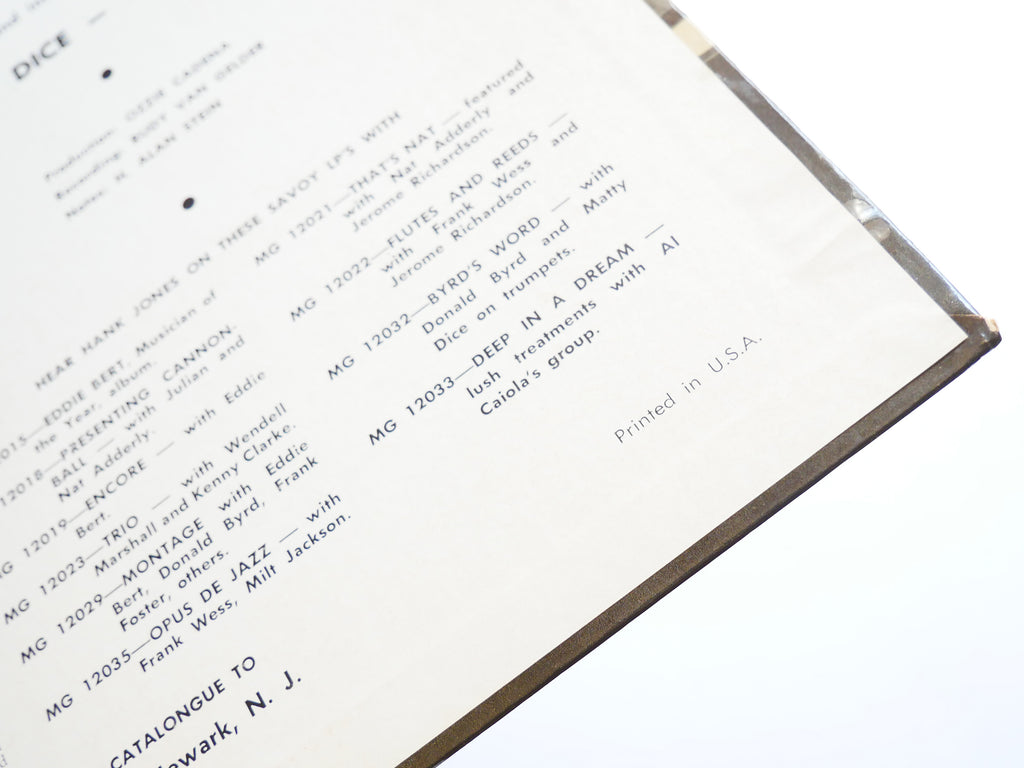 DICE —
Production: OZZIE CADENA
Recording: RUDY VAN GELDER
Notes: H. ALAN STEIN
HEAR HANK JONES ON THESE SAVOY LP'S WITH
015—EDDIE BERT, Musician of
the Year, album.
12018—PRESENTING CANNON-
BALL — with Julian and
Nat Adderly.
MG 12019—ENCORE — with Eddie
Bert.
MG 12023—TRIO — with Wendell
Marshall and Kenny Clarke.
MG 12029—MONTAGE with Eddie
Bert, Donald Byrd, Frank
Foster, others.
MG 12035—OPUS DE JAZZ — with
Frank Wess, Milt Jackson.
MG 12021—THAT'S NAT — featured
with Nat Adderly and
Jerome Richardson.
MG 12022—FLUTES AND REEDS —
with Frank Wess and
Jerome Richardson.
MG 12032—BYRD'S WORD — with
Donald Byrd and Matty
Dice on trumpets.
MG 12033—DEEP IN A DREAM —
lush treatments with Al
Caiola's group.
CATALOGUE TO
ewark, N. J.
Printed in U.S.A.